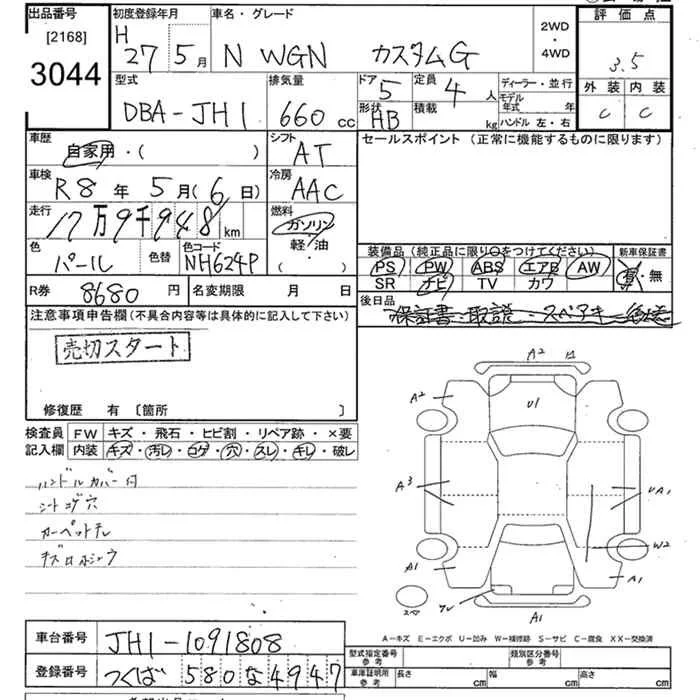 出品番号 初度登録年月 車名・グレード 評価点
[2168] H 27 5月 N WGN カスタムG 2WD・4WD 3.5
3044
型式 排気量 ドア 定員 ディーラー・並行 外装 内装
DBA-JH1 660cc 5 4人 モデル年式 年 C C
形状 HB 積載 kg ハンドル 左・右
車歴 シフト セールスポイント (正常に機能するものに限ります)
自家用・( ) AT
車検 冷房
R8年 5月(6日) AAC
走行 燃料
17万9千948km ガソリン
軽油
( ・ )
色 色替 色コード 装備品(純正品に限り○をつけてください) 新車保証書
パール NH624P PS PW ABS エアB AW 有・無
SR ナビ TV カワ
R券 8680円 名変期限 月 日 後日品
保証書・取説・スペアキー
注意事項申告欄(不具合内容等は具体的に記入して下さい)
売切スタート
修復歴 有 〔箇所 〕
検査員 FW キズ・飛石・ヒビ割・リペア跡・×要
記入欄 内装 キズ・汚レ・コゲ・穴・スレ・キレ・破レ
ハンドルカバー付
シートコゲ穴
カーペットスレ
A2
A2 U1
A3 UA1
W2
A1 A1
スペア A1
A-キズ E-エクボ U-凹み W-補修跡 S-サビ C-腐食 XX-交換済
車台番号 JH1-1091808
登録番号 つくば 580 な 4947
型式指定番号 参考 類別区分番号 参考
車庫証明所 参考 長さ cm 幅 cm 高さ cm